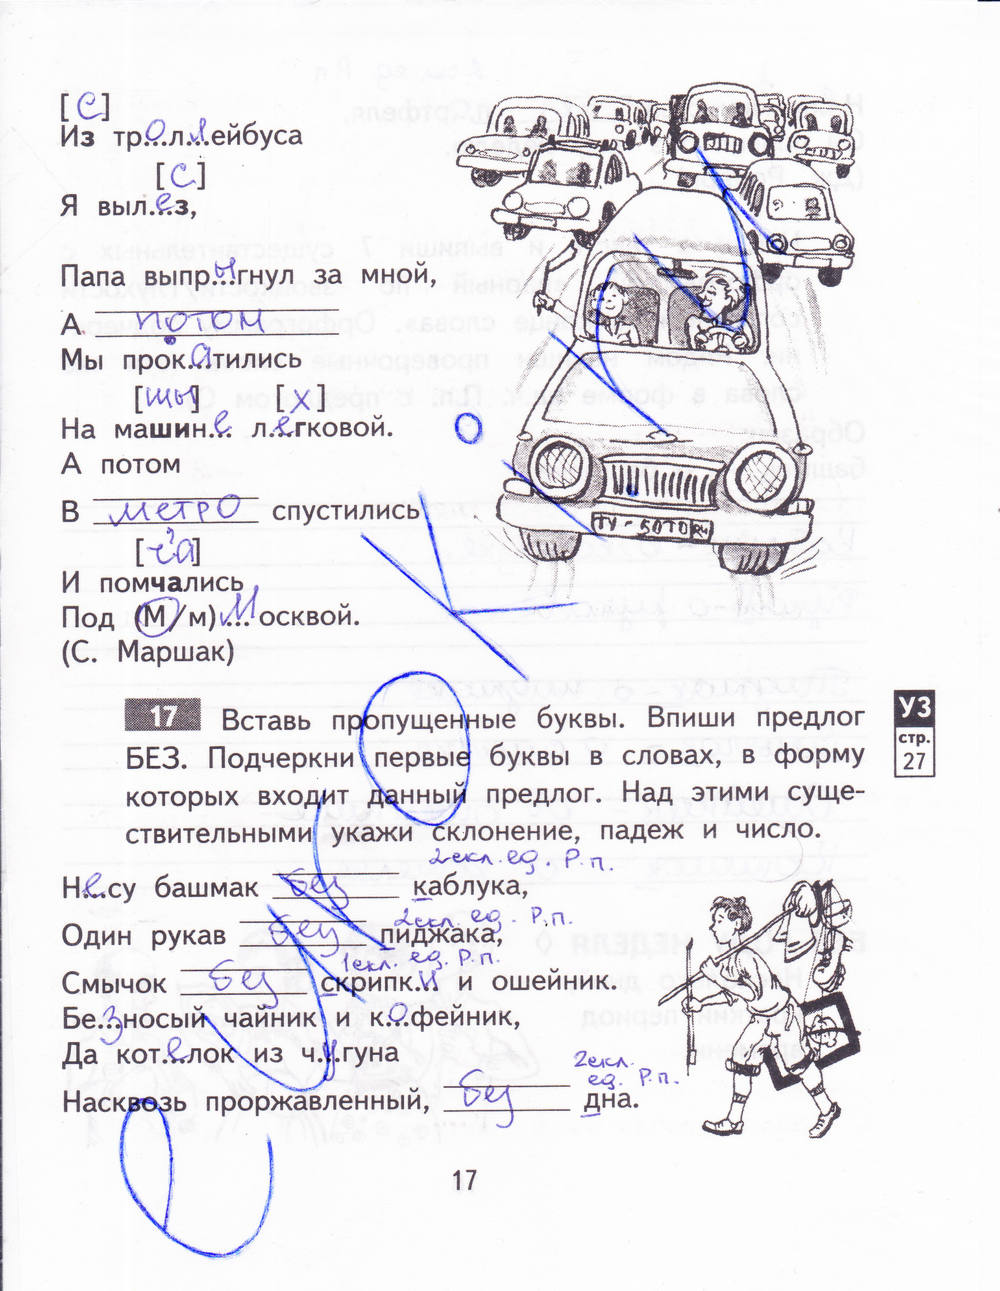 [С]
Из тр..о..л..л..ейбуса
[С]
Я выл..е..з,
Папа выпр..ы..гнул за мной,
А потом
Мы прок..а..тились
[шы] [х]
На машин..е.. л..е..гковой.
А потом
В метро спустились
[ч'а]
И помчались
Под (М/м)..М..осквой.
(С. Маршак)
ТУ-5070
17 Вставь пропущенные буквы. Впиши предлог
БЕЗ. Подчеркни первые буквы в словах, в форму
которых входит данный предлог. Над этими суще-
ствительными укажи склонение, падеж и число.
УЗ
стр.
27
2скл. ед. Р.п.
Н..е..су башмак без каблука,
2скл. ед. Р.п.
Один рукав без пиджака,
1скл. ед. Р.п.
Смычок без скрипк..и и ошейник.
Бе..з..носый чайник и к..о..фейник,
Да кот..е..лок из ч..у..гуна
2скл.
ед. Р.п.
Насквозь проржавленный, без дна.
17